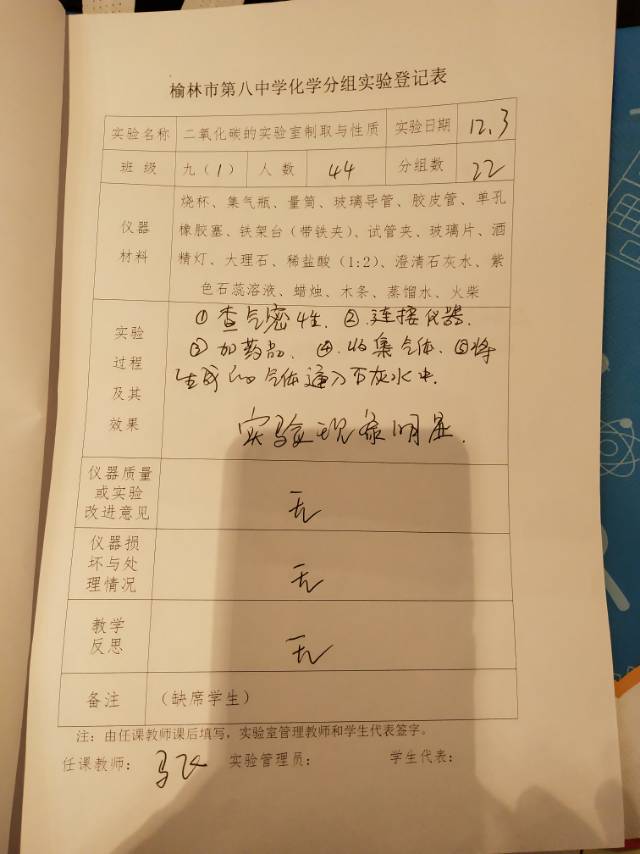 榆林市第八中学化学分组实验登记表
实验名称 二氧化碳的实验室制取与性质 实验日期 12.3
班级 九(1) 人数 44 分组数 22
仪器
材料
烧杯、集气瓶、量筒、玻璃导管、胶皮管、单孔
橡胶塞、铁架台(带铁夹)、试管夹、玻璃片、酒
精灯、大理石、稀盐酸(1:2)、澄清石灰水、紫
色石蕊溶液、蜡烛、木条、蒸馏水、火柴
实验
过程
及其
效果
①查气密性. ②.连接仪器.
③加药品. ④.收集气体.⑤将
生成的气体通入石灰水中.
实验现象明显.
仪器质量
或实验
改进意见
无
仪器损
坏与处
理情况
无
教学
反思
无
备注 (缺席学生)
注:由任课教师课后填写,实验室管理教师和学生代表签字。
任课教师: 马飞 实验管理员: 学生代表: